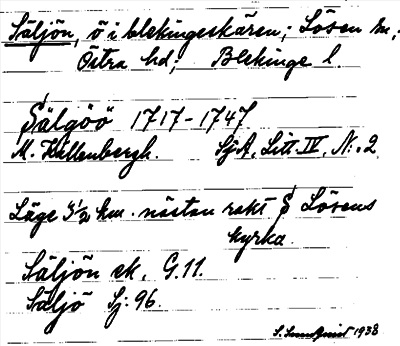 Säljön, ö i blekingeskären; Lösen sn,
Östra hd; Blekinge l.
Sälgöö 1717-1747
M. Hallenbergh. SjA, Litt. IV, N:. 2
Läge 3 1/2 km. nästan rakt S Lösens
kyrka.
Säljön ek. G.11.
Säljö Sj: 96.
S. Sundquist 1938